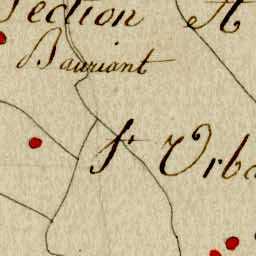 Section A
Bauriant
St Urba